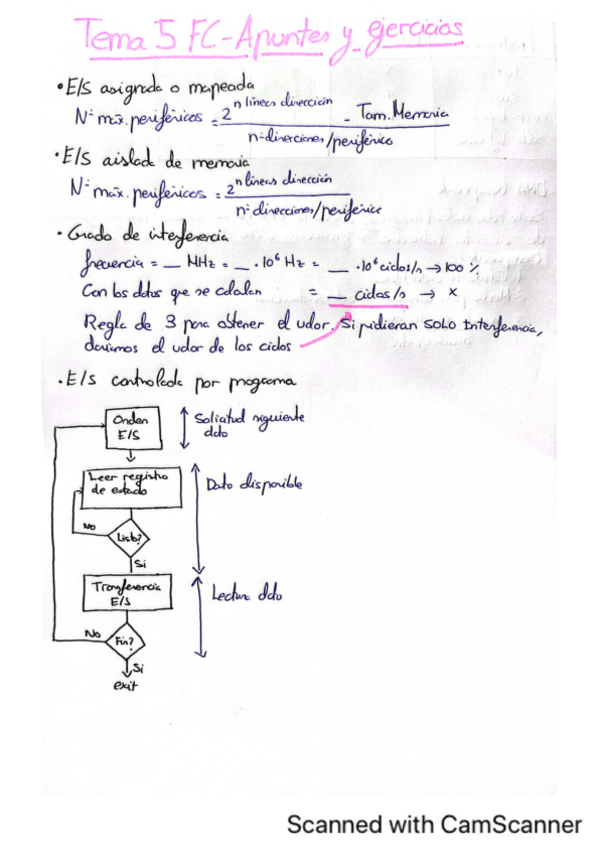 Tema 5 FC-Apuntes y ejercicios
• E/S asignada o mapeada
Nº máx. periféricos = 2^n líneas dirección - Tam. Memoria
nº direcciones/periférico
• E/S aislada de memoria
Nº máx. periféricos = 2^n líneas dirección
nº direcciones/periférico
• Grado de interferencia
frecuencia = __ MHz = __ · 10⁶ Hz = __ · 10⁶ ciclos/s → 100 %
Con los datos que se calculan = __ ciclos/s → x
Regla de 3 para obtener el valor. Si pidieran solo interferencia,
daríamos el valor de los ciclos
• E/S controlada por programa
Orden
E/S
Solicitud siguiente
dato
Leer registro
de estado
Dato disponible
No
Listo?
Si
Transferencia
E/S
Lectura dato
No
Fin?
Si
exit
Scanned with CamScanner